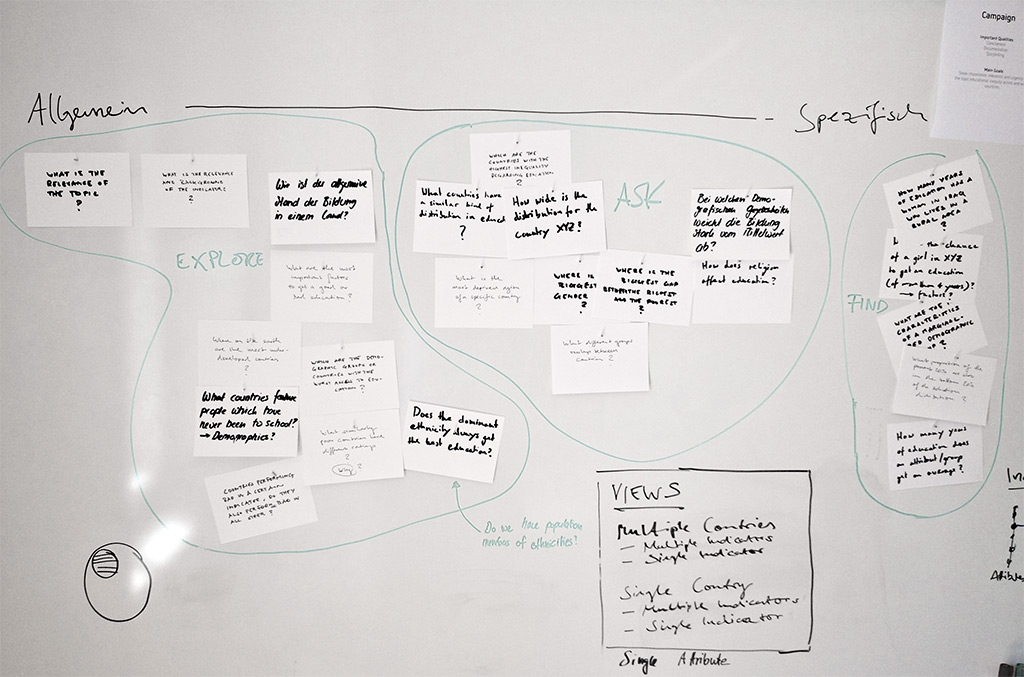 Campaign
Important Qualities
Main Goals
Allgemein
Spezifisch
EXPLORE
WHAT IS THE
RELEVANCE OF
THE TOPIC
?
WHAT IS THE RELEVANCE
AND BACKGROUND
OF THE INDICATORS
?
Wie ist der allgemeine
Stand der Bildung
in einem Land?
What are the most
important factors
to get a good or
bad education?
Where on the earth
are the most under-
developed countries
?
WHICH ARE THE DEMO-
GRAPHIC GROUPS OR
COUNTRIES WITH THE
WORST ACCESS TO EDU-
CATION?
What countries feature
people which have
never been to school?
→ Demographics?
What similarly
poor countries have
different ratings
?
Why ?
Does the dominant
ethnicity always get
the best education?
COUNTRIES PERFORMING
BAD IN A CERTAIN
INDICATOR, DO THEY
ALSO PERFORM BAD IN
ALL OTHER?
Do we have population
numbers of ethnicities?
ASK
WHICH ARE THE
COUNTRIES WITH THE
HIGHEST INEQUALITY
REGARDING EDUCATION
?
What countries have
a similar kind of
distribution in educ
?
How wide is the
distribution for the
country XYZ?
Bei welchen Demo-
grafischen Gegebenheiten
weicht die Bildung
stark vom Mittelwert
ab?
What is the
most deprived region
of a specific country
?
WHERE IS
BIGGEST
GENDER?
WHERE IS THE
BIGGEST GAP
BETWEEN THE RICHEST
AND THE POOREST
?
How does religion
affect education?
What different groups
between
countries
?
FIND
HOW MANY YEARS
OF EDUCATION HAS A
WOMAN IN IRAQ
WHO LIVED IN A
RURAL AREA
?
the chance
of a girl in XYZ
to get an education
(of more than 4 years)?
→ factors?
WHAT ARE THE
CHARACTERISTICS
OF A MARGINAL-
IZED DEMOGRAPHIC
?
What proportion of the
How many years
of education does
an attribute/group
get on average?
VIEWS
Multiple Countries
– Multiple Indicators
– Single Indicator
Single Country
– Multiple Indicators
– Single Indicator
Single Attribute